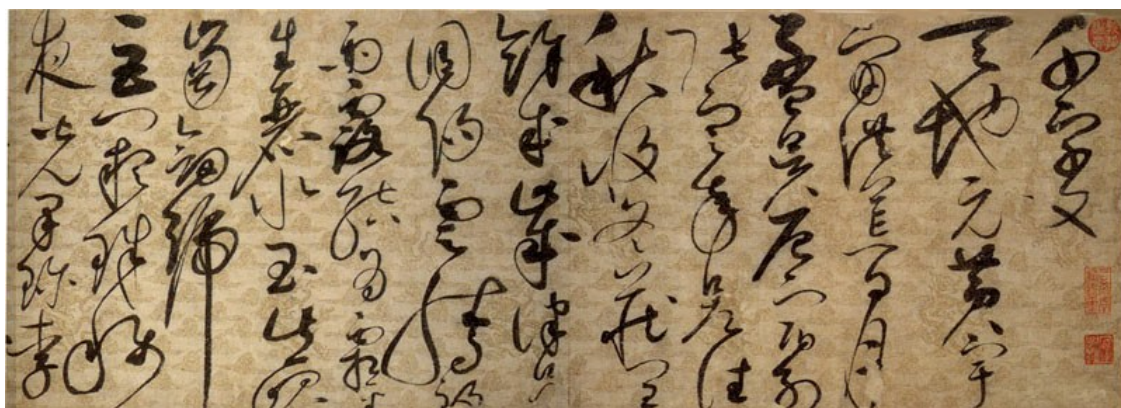 千字文
天地元黃宇
宙洪荒日月
盈昃辰宿列
張寒來暑往
秋收冬藏閏
餘成歲律呂
調陽雲騰致
雨露結為霜金
生麗水玉出崑
崗劍號
巨闕珠稱
夜光果珍李